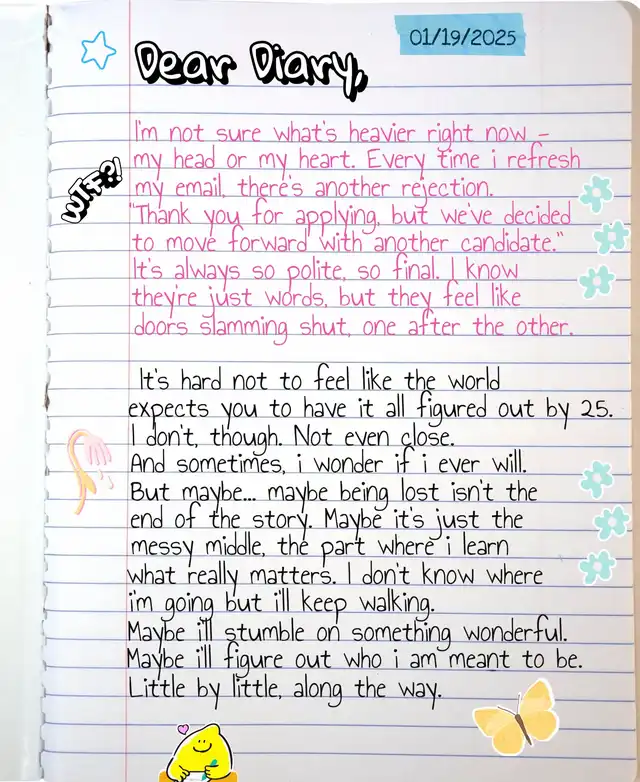 01/19/2025
Dear Diary,
I'm not sure what's heavier right now –
my head or my heart. Every time i refresh
my email, there's another rejection.
WTF?!
"Thank you for applying, but we've decided
to move forward with another candidate."
It's always so polite, so final. I know
they're just words, but they feel like
doors slamming shut, one after the other.
It's hard not to feel like the world
expects you to have it all figured out by 25.
I don't, though. Not even close.
And sometimes, i wonder if i ever will.
But maybe... maybe being lost isn't the
end of the story. Maybe it's just the
messy middle, the part where i learn
what really matters. I don't know where
i'm going but i'll keep walking.
Maybe i'll stumble on something wonderful.
Maybe i'll figure out who i am meant to be.
Little by little, along the way.